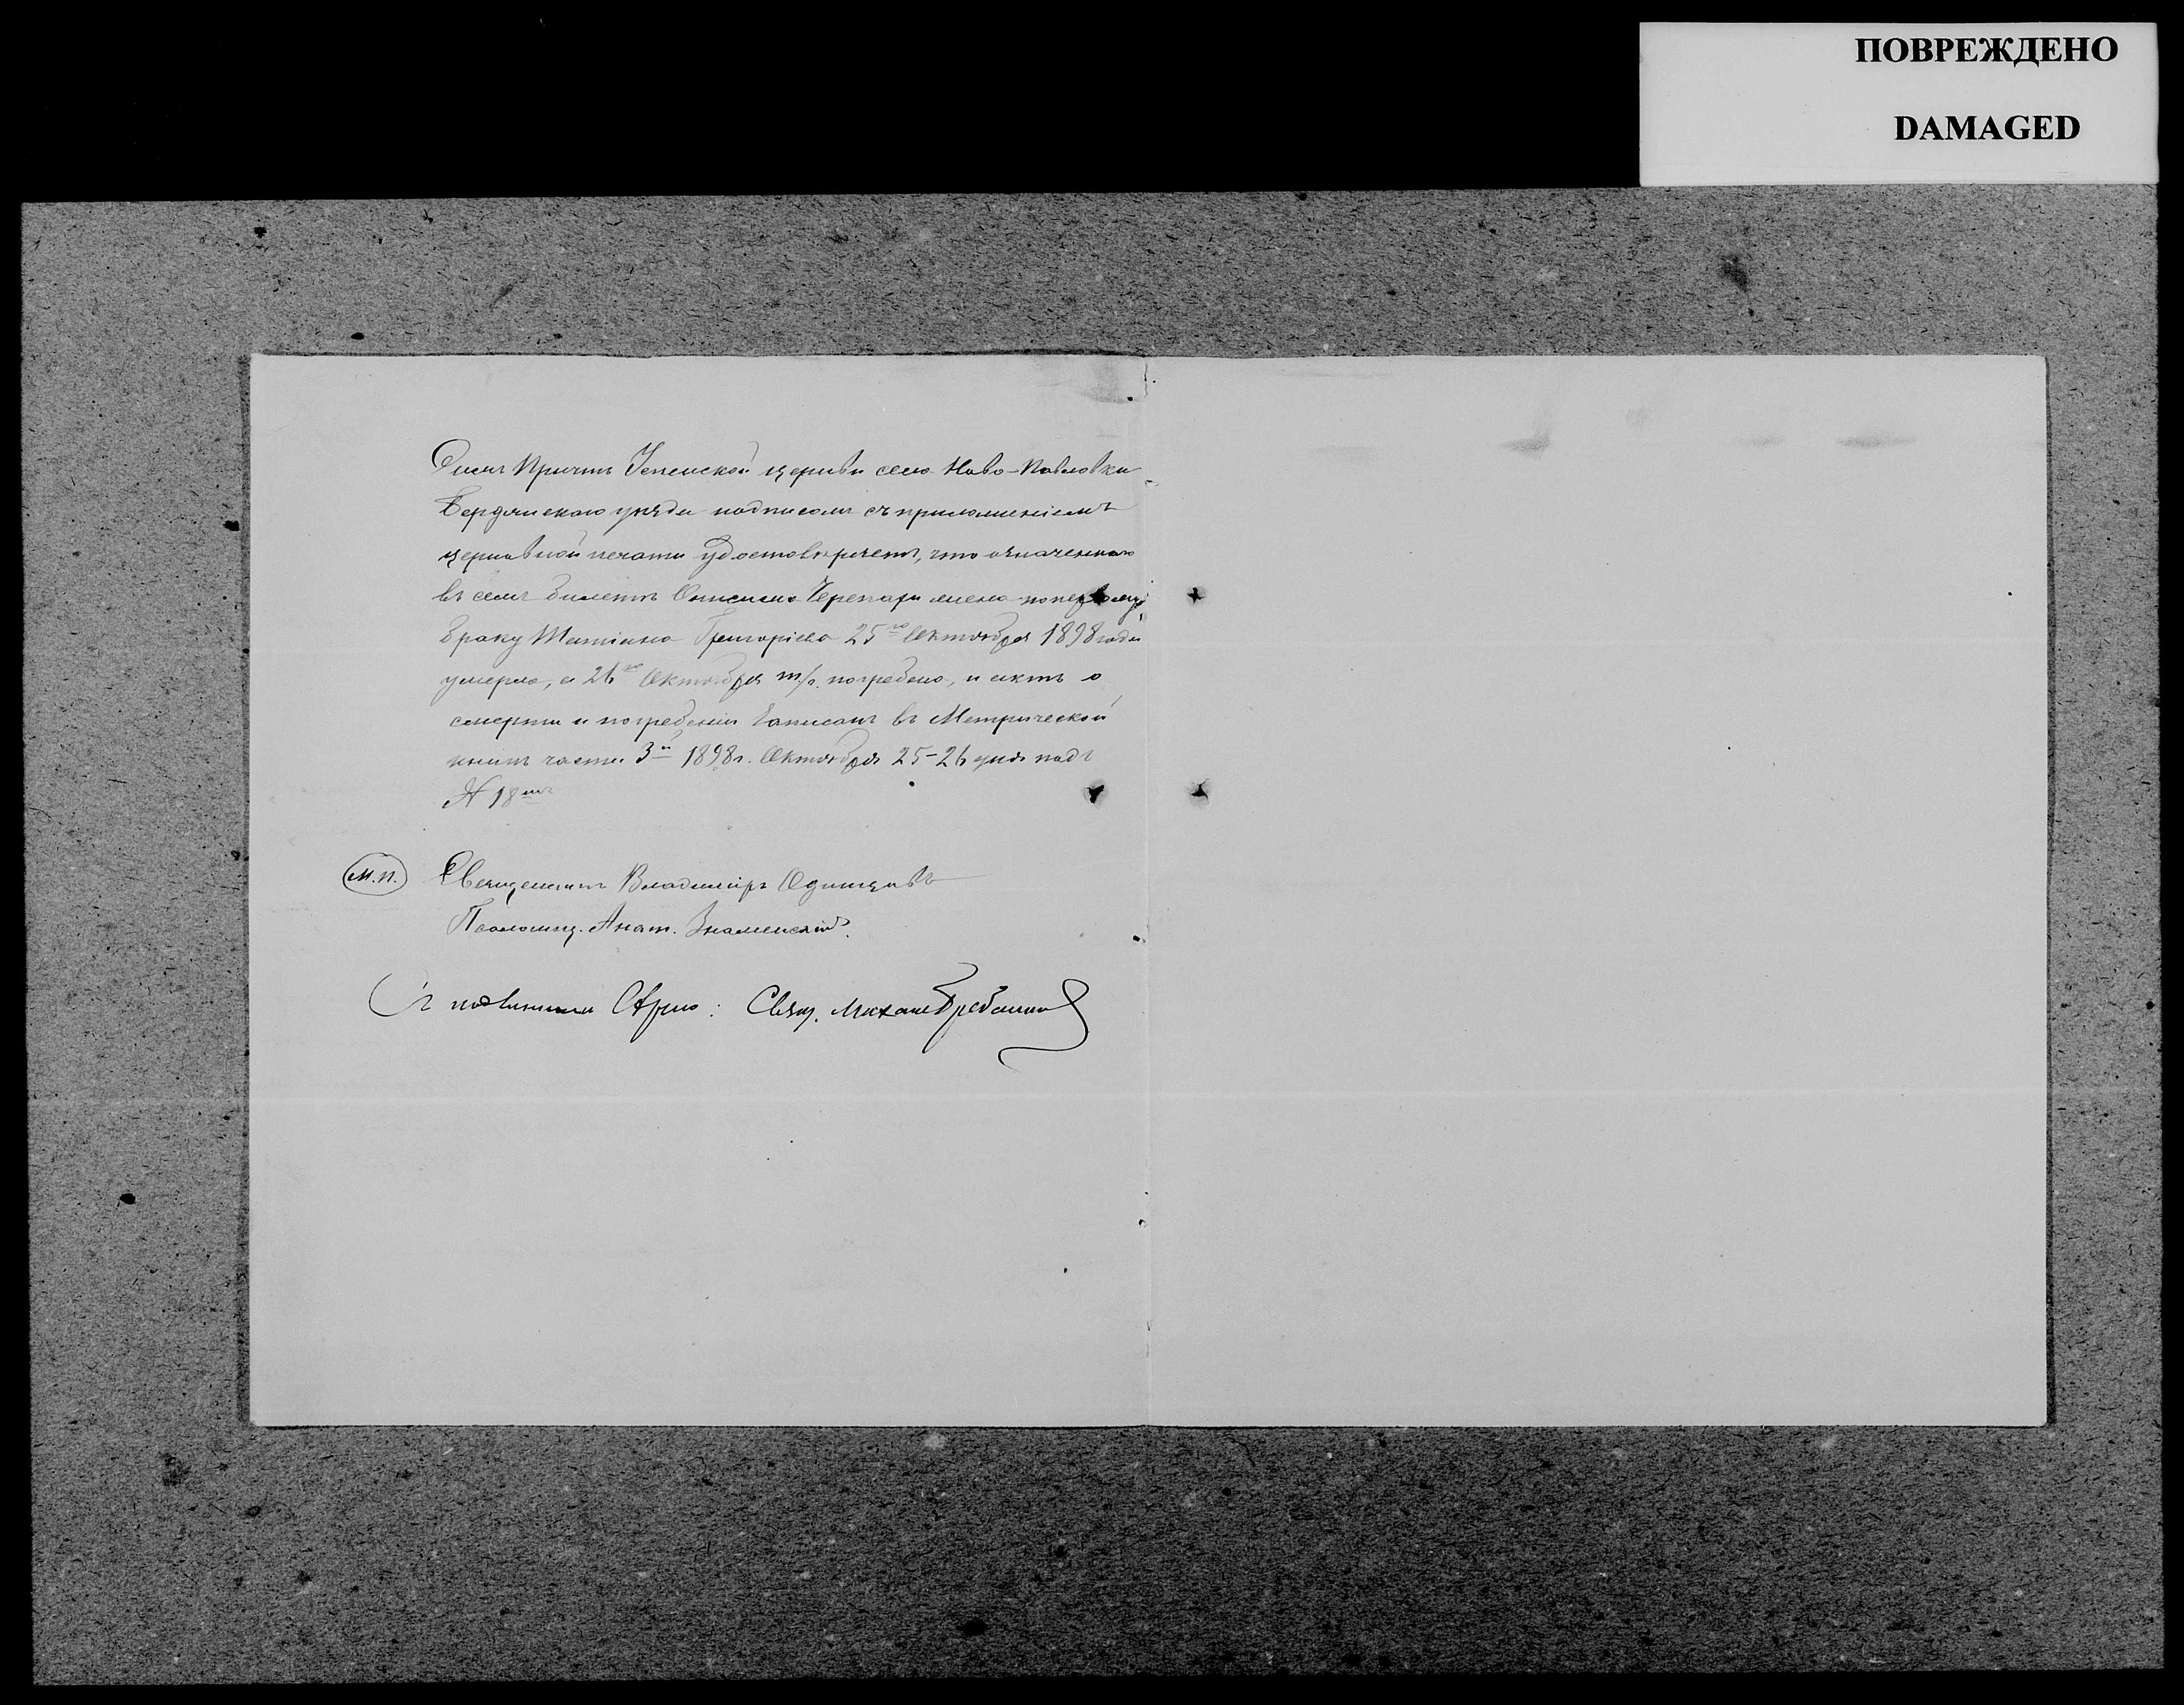 ПОВРЕЖДЕНО
DAMAGED
Симъ Причтъ Успенской церкви села Ново-Павловки
Бердянскаго уѣзда подписомъ съ приложеніемъ
церковной печати удостовѣряетъ, что означеннаго
въ семъ билетѣ Черепахи жена по первому
браку Татіана Григоріева 25го Октября 1898 года
умерла, а 26го Октября т/г. погребена, и актъ о
смерти и погребеніи записанъ въ Метрической
книгѣ части 3й 1898 г. Октября 25-26 дня подъ
№ 18мъ
М.П. Священникъ Владиміръ Одинцовъ
Псаломщ. Анат. Знаменскій
Съ подлиннымъ вѣрно: Свящ. Михаил